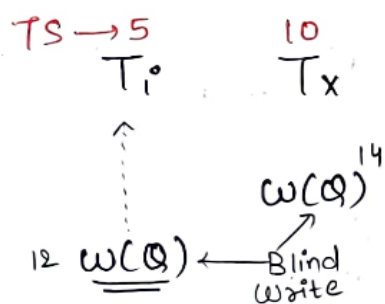 TS → 5 10
Ti Tx
W(Q)14
12 W(Q) ← Blind
Write